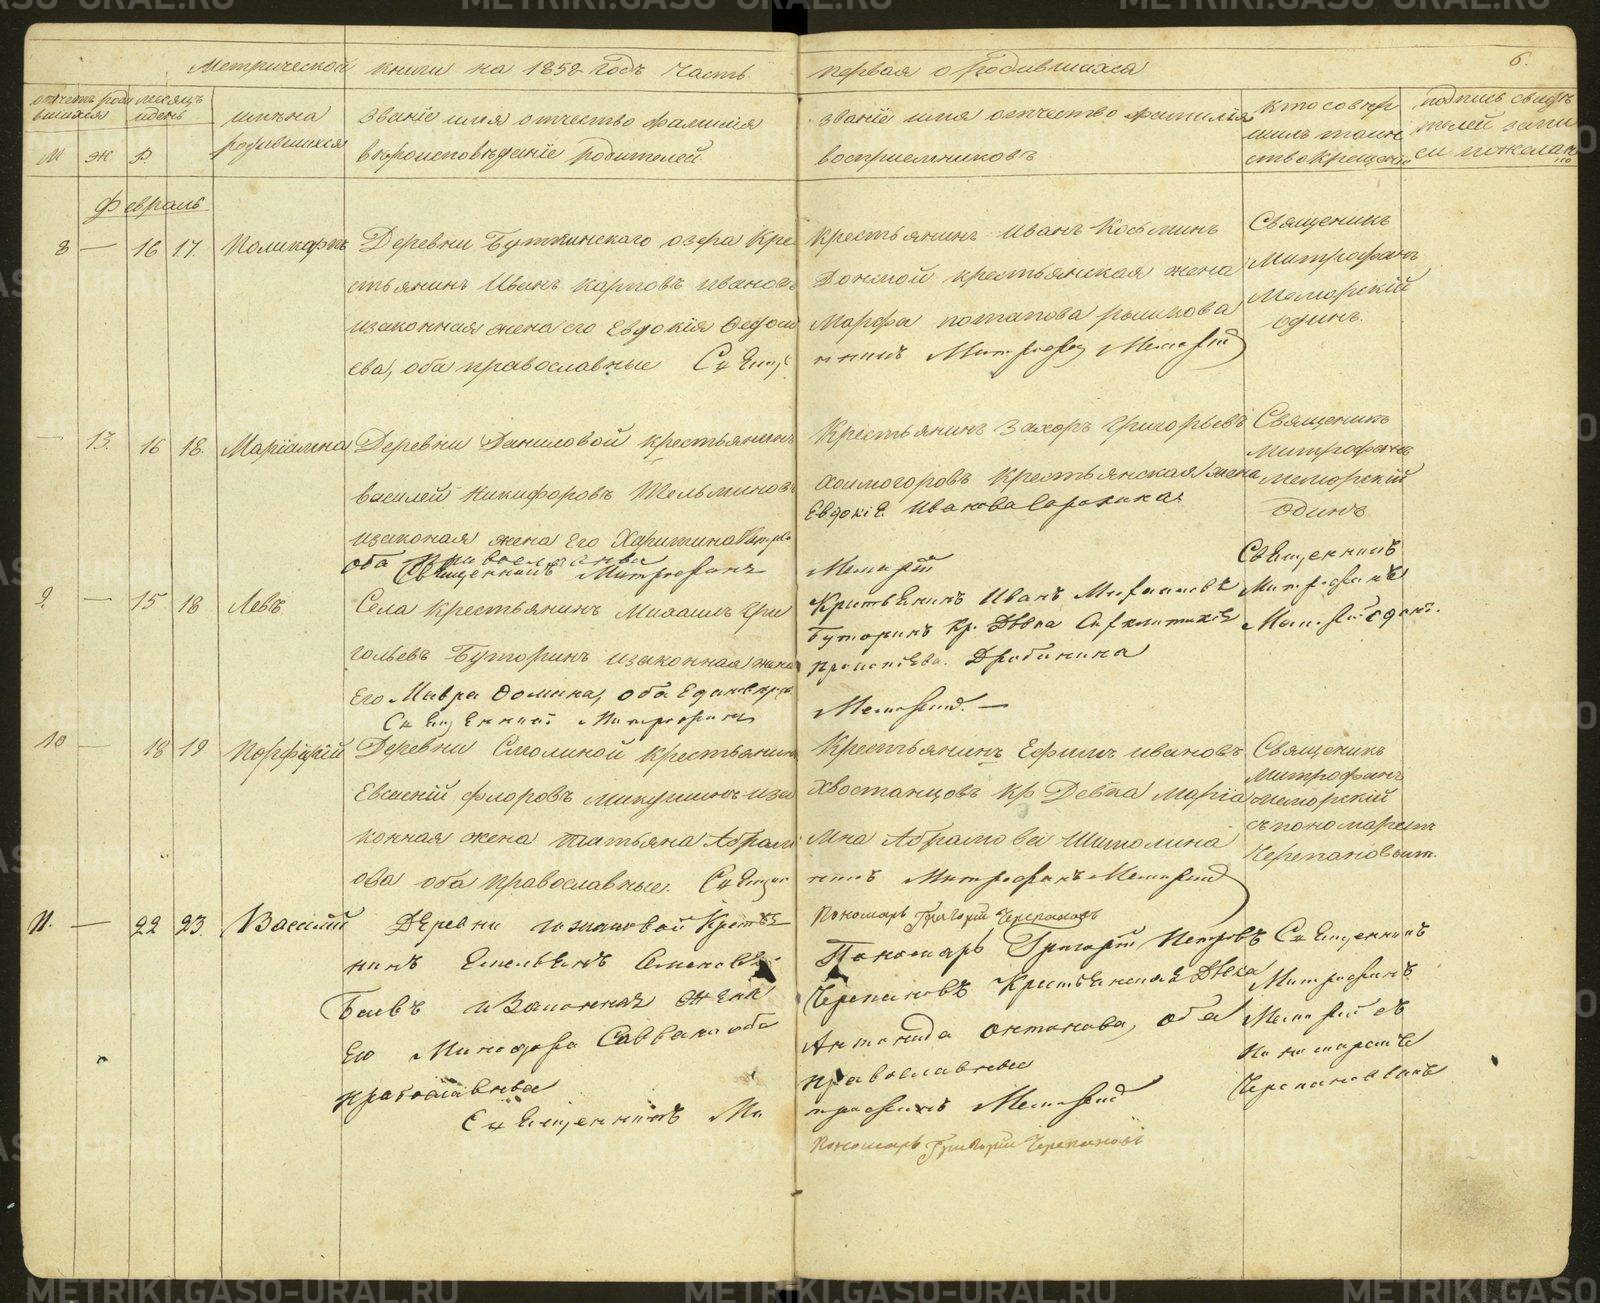 METRIKI.GASO-URAL.RU
Метрической книги на 1858 годъ часть первая о родившихся
6.
счетъ роди
вшихся
М ж
месяцъ
и день
Р.
имена
родившихся
званіе имя отчество фамилія
вероисповѣданіе родителей.
званіе имя отчество фамилія
восприемниковъ
кто совер
шилъ таин
ство крещенія
подпись свидѣ
телей запи
си по желан
Февраль
8 — 16 17. Поликарпъ
Деревни Буткинскаго озера Кре
стьянинъ Иванъ Карповъ Ивановъ
изаконная жена его Евдокія Федось
ева, оба православные Свящ
Крестьянинъ Иванъ Косьминъ
Донской крестьянская жена
Марфа Потапова Рышкова
нникъ Митрофанъ Меморскій
Священикъ
Митрофанъ
Меморскій
одинъ.
— 13. 16 18. Маріамна
Деревни Даниловой крестьянинъ
Василей Никифоровъ Шельминовъ
изаконая жена Его Харитина
оба православные
Священникъ Митрофанъ
Крестьянинъ Захоръ Григорьевъ
Холмогоровъ Крестьянская жена
Евдокіе Иванова Сорокина.
Меморскій
Священикъ
Митрофанъ
меморскій
одинъ
9. — 15 18 Левъ
Села крестьянинъ Михаилъ Гри
горьевъ Буторинъ изаконная жена
Его Мавра Фомина, оба Единоверцы
Священникъ Митрофанъ
Крестьянинъ Иванъ Михаиловъ
Буторинъ кр. Дѣвка
Прокопіева. Дробинина
Меморскій. —
Священникъ
Митрофанъ
Меморскій одинъ.
10 — 18 19 Порфирій
Деревни Смолиной крестьянинъ
Евсевій Флоровъ Микушинъ иза
конная жена Татьяна Абрам
ова оба православные. Священ
Крестьянинъ Ефимъ Ивановъ
Хвостанцовъ кр Девка Маріа
мна Абрамова Шишолина
никъ Митрофанъ Меморскій
Пономарь Григорій Черепановъ
Священикъ
Митрофанъ
меморскій
съ пономаремъ
Черепановымъ.
11. — 22 23. Василій
Деревни Казаковой Крестья
нинъ Емельянъ Семеновъ
Баевъ и Законная жена
Его Минодора Саввина оба
православные
Священникъ Ми
Пономарь Григорій Петровъ
Черепановъ Крестьянская Дѣвка
Антонида Антонова, оба
православные
трофанъ Меморскій
Пономарь Григорій Черепановъ
Священникъ
Митрофанъ
Меморскій съ
Пономаремъ
Черепановымъ